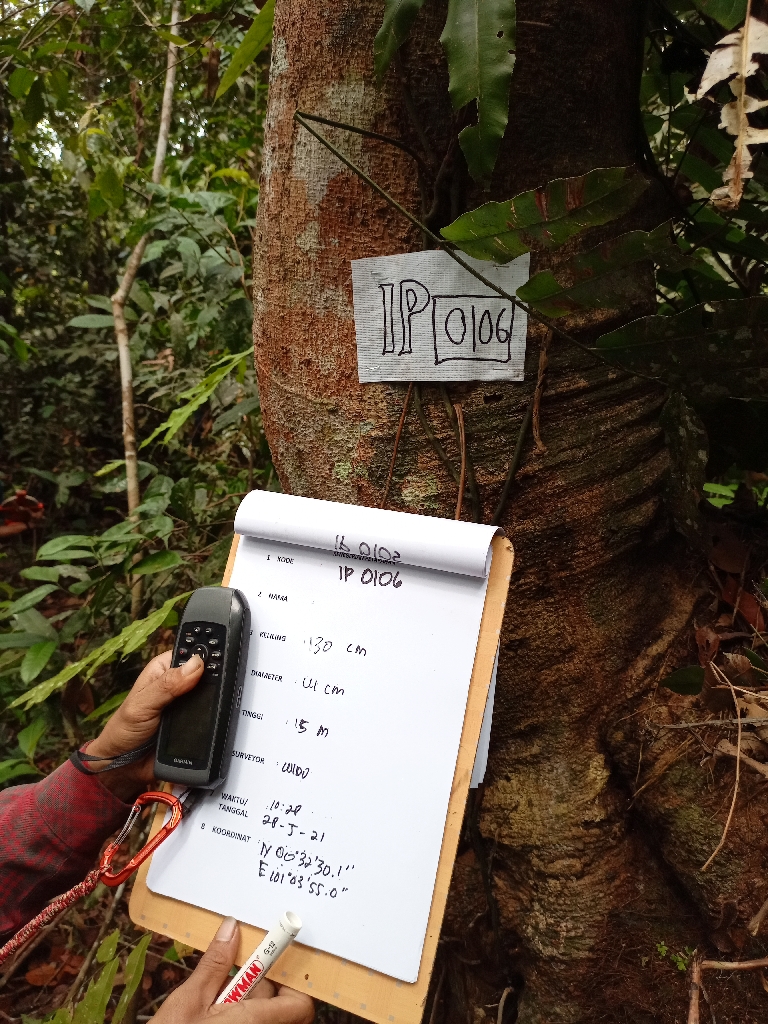 IP 0106
1 KODE
IP 0102
IP 0106
2 NAMA :
3 KELILING : 130 cm
DIAMETER : 41 cm
TINGGI : 15 M
SURVEYOR : WIDO
WAKTU/
TANGGAL : 10:28
28-5-21
8 KOORDINAT : N 00°32'30.1"
E 101°03'55.0"
GARMIN
G-12
OWMAN